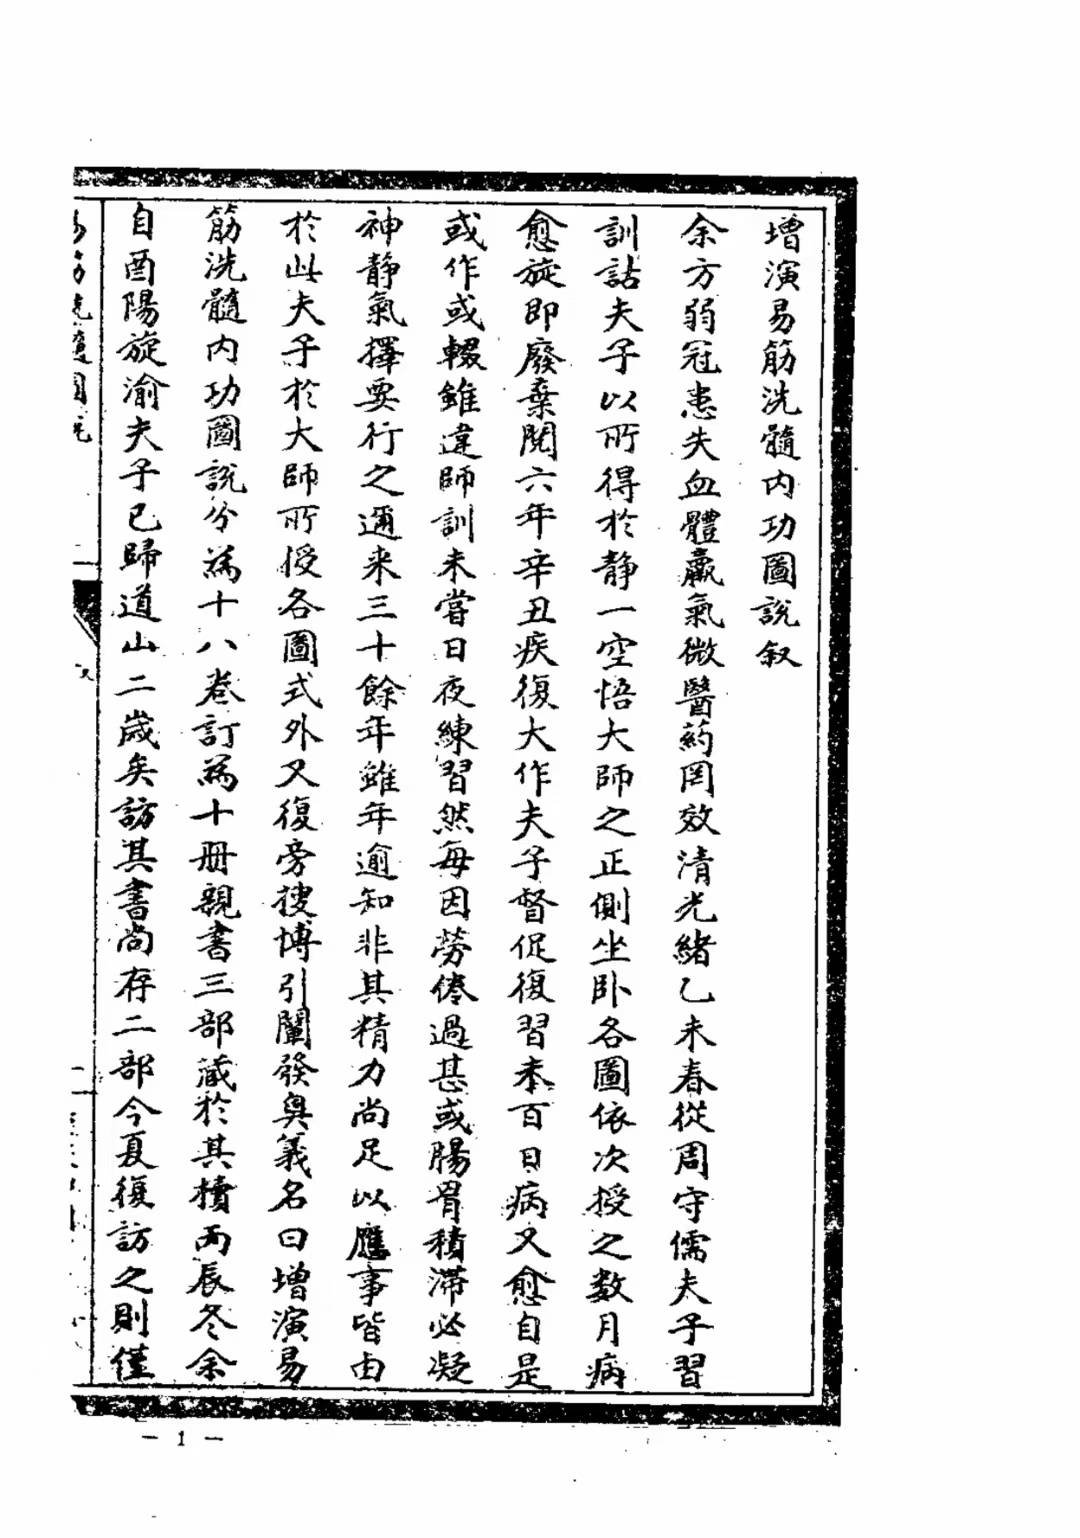 增演易筋洗髓內功圖說叙
余方弱冠患失血體羸氣微醫药罔效清光緒乙未春從周守儒夫子習
訓詁夫子以所得於靜一空悟大師之正側坐卧各圖依次授之数月病
愈旋即廢棄閱六年辛丑疾復大作夫子督促復習未百日病又愈自是
或作或輟雖違師訓未嘗日夜練習然每因勞倦過甚或腸胃積滯必凝
神靜氣擇要行之邇来三十餘年雖年逾知非其精力尚足以應事皆由
於此夫子於大師所授各圖式外又復旁搜博引闡發奥義名曰增演易
筋洗髓内功圖說分為十八卷訂為十册親書三部藏於其櫝丙辰冬余
自酉陽旋渝夫子已歸道山二歲矣訪其書尚存二部今夏復訪之則僅
— 1 —